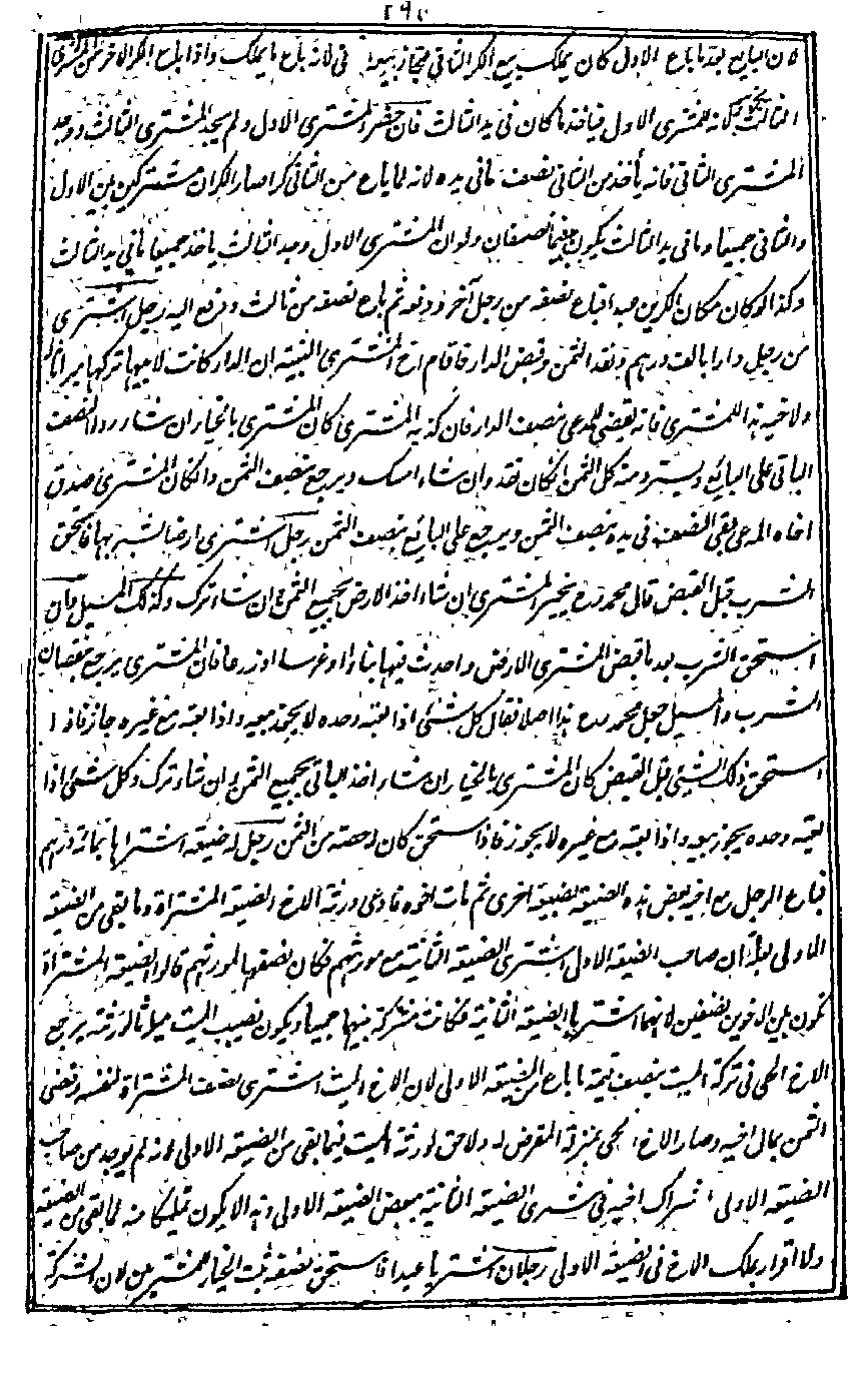 لان البايع بعد ما باع الاول كان يملك بيع الكر الثاني فيجاز بيعه في لانه باع ما يملك واذا باع الكر الاخر من المشتري
الثالث لانه للمشتري الاول فياخذ ما كان في يد الثالث فان حضر المشتري الاول ولم يجد المشتري الثالث ووجد
المشتري الثاني فانه يأخذ من الثاني نصف ما في يده لانه لما باع من الثاني كرا صار الكران مشتركين بين الاول
والثاني جميعا وما في يد الثالث يكون بينهما نصفان ولو ان المشتري الاول وجد الثالث ياخذ جميعا ما في يد الثالث
وكذا لو كان مكان الكرين عبد فباع نصفه من رجل آخر ودفعه ثم باع نصفه من ثالث ودفع اليه رجل اشترى
من رجل دارا بالف درهم ونقد الثمن وقبض الدار فاقام اخ المشتري البينة ان الدار كانت لابيها تركها ميراثا له
ولاخيه هذا المشتري فانه يقضي للمدعي بنصف الدار فان كذبه المشتري كان المشتري بالخيار ان شاء رد النصف
الباقي على البايع ويسترد منه كل الثمن ان كان نقد وان شاء امسك ويرجع بنصف الثمن وان كان المشتري صدق
اخاه المدعي بقي النصف في يده بنصف الثمن ويرجع على البايع بنصف الثمن رجل اشترى ارضا بشربها فاستحق
الشرب قبل القبض قال محمد رح يخير المشتري ان شاء اخذ الارض بجميع الثمن وان شاء ترك وكذلك المسيل وان
استحق الشرب بعد ما قبض المشتري الارض واحدث فيها بناء او غرسا او زرعا فان المشتري يرجع بنقصان
الشرب والمسيل جعل محمد رح لهذا اصلا فقال كل شئ اذا بعته وحده لا يجوز بيعه واذا بعته مع غيره جاز فاذا
استحق ذلك الشئ قبل القبض كان المشتري بالخيار ان شاء اخذ الباقي بجميع الثمن وان شاء ترك وكل شئ اذا
بعته وحده يجوز بيعه واذا بعته مع غيره لا يجوز فاذا استحق كان له حصته من الثمن رجل له ضيعة اشتراها بمائة درهم
فباع الرجل مع اخيه بعض هذه الضيعة بضيعة اخرى ثم مات اخوه فادعى ورثة الاخ الضيعة المشتراة وما بقي من الضيعة
الاولى بعلة ان صاحب الضيعة الاولى اشترى الضيعة الثانية مع مورثهم فكان نصفها لمورثهم قالوا الضيعة المشتراة
تكون بين الاخوين نصفين لانهما اشتريا الضيعة الثانية فكانت مشتركة بينهما جميعا ويكون نصيب الميت ميراثا لورثته يرجع
الاخ الحي في تركة الميت بنصف قيمة ما باع من الضيعة الاولى لان الاخ الميت اشترى نصف المشتراة لنفسه وقضى
الثمن بمال اخيه وصار الاخ الحي بمنزلة المقرض له ولا حق لورثة الميت فيما بقي من الضيعة الاولى لانه لم يوجد من صاحب
الضيعة الاولى اشراك اخيه في شرى الضيعة الثانية ببعض الضيعة الاولى وهذا لا يكون تمليكا منه لما بقي من الضيعة
ولا اقرار بملك الاخ في الضيعة الاولى رجلان اشتريا عبدا فاستحق نصفه ثبت الخيار للمشتريين لان الشركة